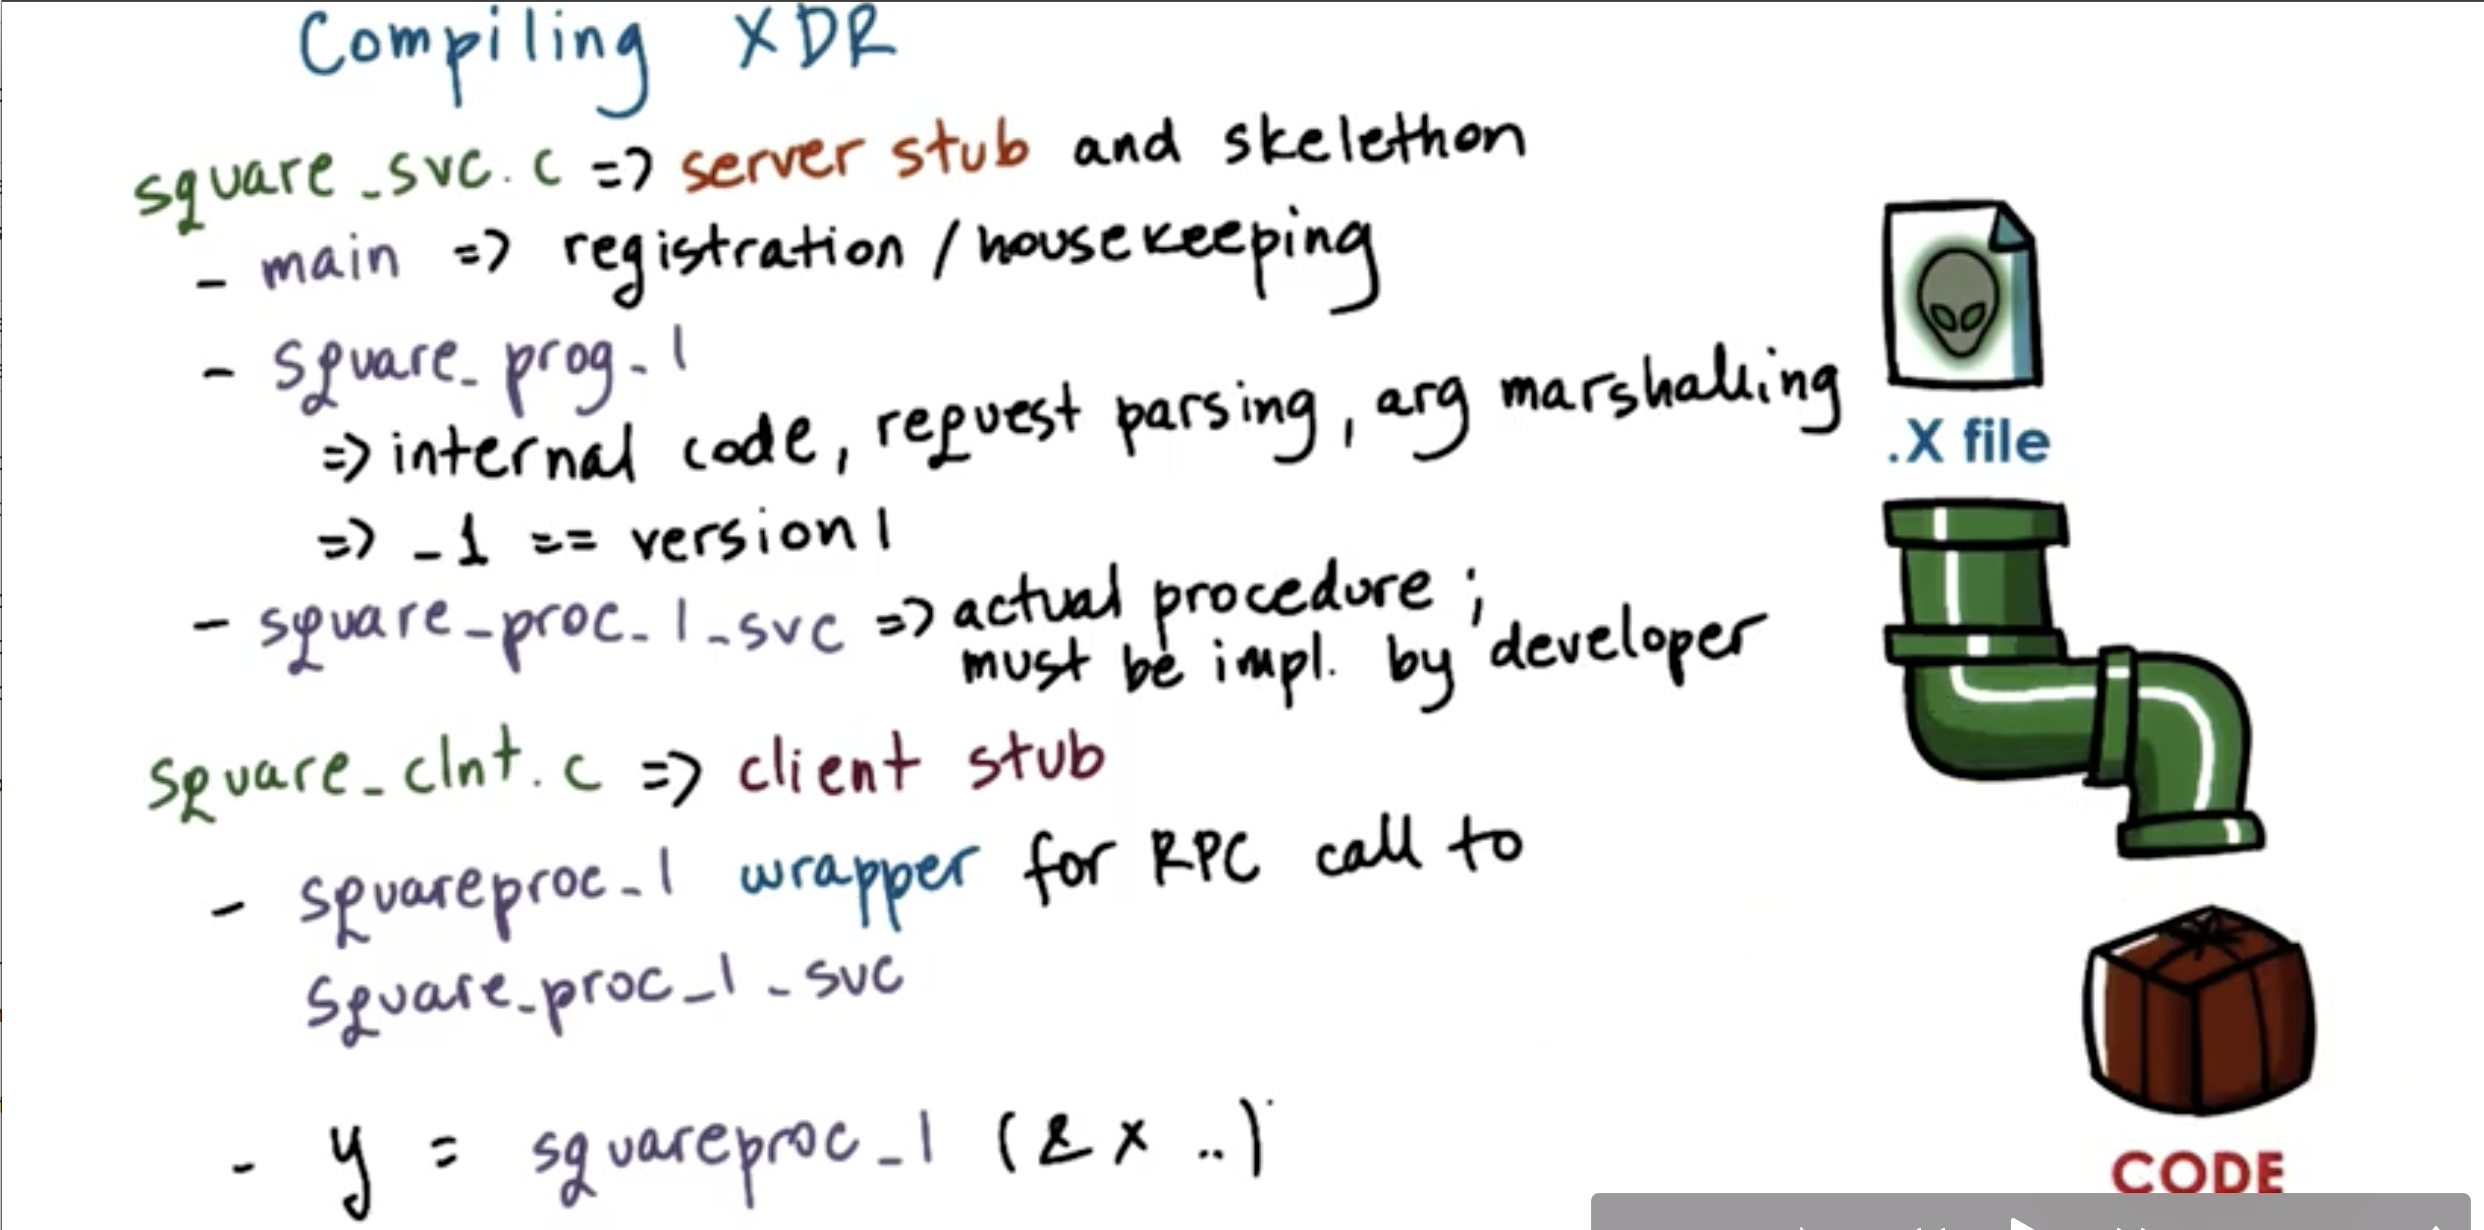 Compiling XDR
square_svc.c => server stub and skelethon
- main => registration / housekeeping
- square_prog_1
=> internal code, request parsing, arg marshalling
=> _1 == version 1
- square_proc_1_svc => actual procedure;
must be impl. by developer
square_clnt.c => client stub
- squareproc_1 wrapper for RPC call to
square_proc_1_svc
- y = squareproc_1 (&x ..)
.X file
CODE